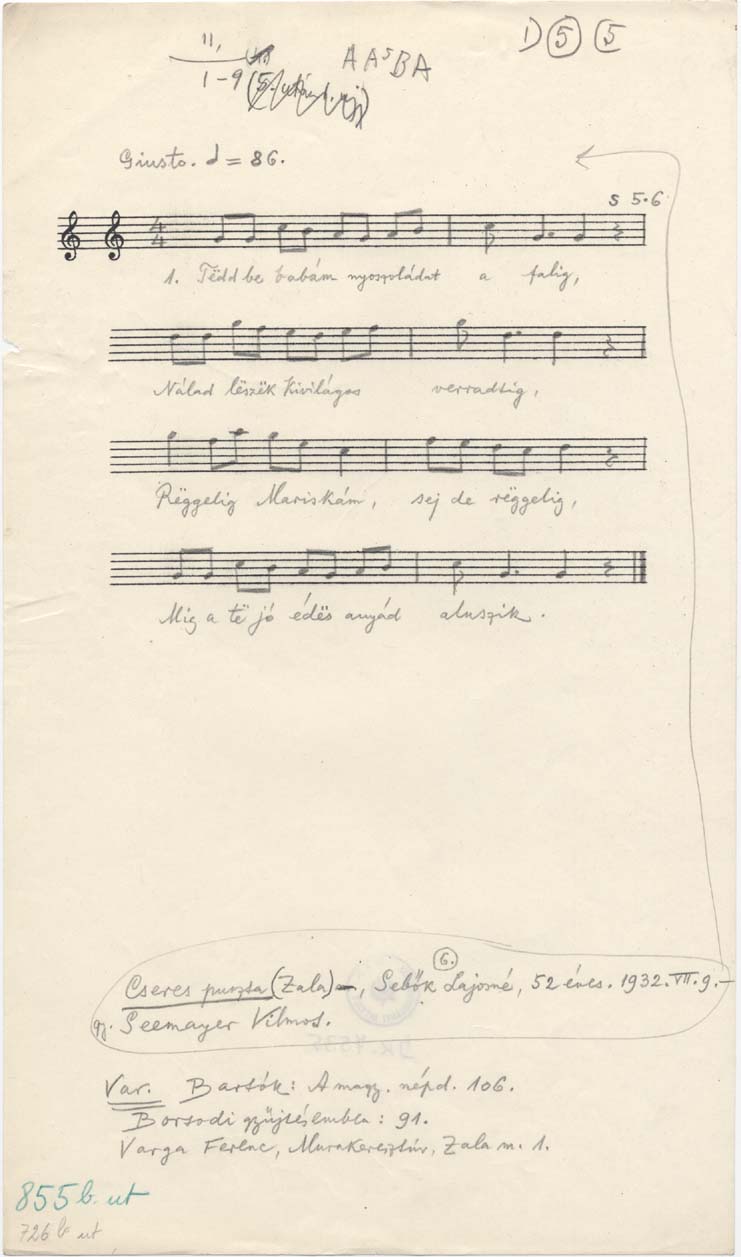 II,
1-9
A A⁵ B A
D 5 5
Giusto. d = 86.
s 5.6
4/4
1. Tëdd be babám nyoszoládat a falig,
Nálad lëszëk kivilágos verradtig,
Rëggelig Mariskám, sej de rëggelig,
Míg a të jó édës anyád aluszik.
6.
Cseres puszta (Zala) –, Sebők Lajosné, 52 éves. 1932. VII. 9. –
gy. Seemayer Vilmos.
Var. Bartók: A magy. népd. 106.
Borsodi gyüjtésemben: 91.
Varga Ferenc, Murakeresztúr, Zala m. 1.
855 b. ut
726 b ut